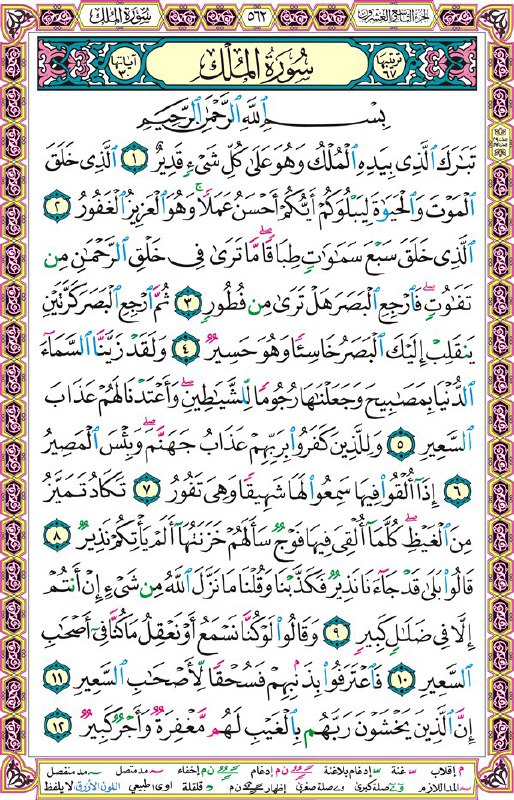 الجزء التاسع والعشرون ٥٦٢ سُورَةُ الْمُلْك
ترتيبها ٦٧ سُورَةُ الْمُلْكِ آياتها ٣٠
بِسْمِ اللَّهِ الرَّحْمَٰنِ الرَّحِيمِ
تَبَارَكَ الَّذِي بِيَدِهِ الْمُلْكُ وَهُوَ عَلَىٰ كُلِّ شَيْءٍ قَدِيرٌ ١ الَّذِي خَلَقَ
الْمَوْتَ وَالْحَيَوٰةَ لِيَبْلُوَكُمْ أَيُّكُمْ أَحْسَنُ عَمَلًا ۚ وَهُوَ الْعَزِيزُ الْغَفُورُ ٢
الَّذِي خَلَقَ سَبْعَ سَمَٰوَاتٍ طِبَاقًا ۖ مَّا تَرَىٰ فِي خَلْقِ الرَّحْمَٰنِ مِن
تَفَٰوُتٍ ۖ فَارْجِعِ الْبَصَرَ هَلْ تَرَىٰ مِن فُطُورٍ ٣ ثُمَّ ارْجِعِ الْبَصَرَ كَرَّتَيْنِ
يَنقَلِبْ إِلَيْكَ الْبَصَرُ خَاسِئًا وَهُوَ حَسِيرٌ ٤ وَلَقَدْ زَيَّنَّا السَّمَاءَ
الدُّنْيَا بِمَصَٰبِيحَ وَجَعَلْنَٰهَا رُجُومًا لِّلشَّيَٰطِينِ ۖ وَأَعْتَدْنَا لَهُمْ عَذَابَ
السَّعِيرِ ٥ وَلِلَّذِينَ كَفَرُوا بِرَبِّهِمْ عَذَابُ جَهَنَّمَ ۖ وَبِئْسَ الْمَصِيرُ
٦ إِذَا أُلْقُوا فِيهَا سَمِعُوا لَهَا شَهِيقًا وَهِيَ تَفُورُ ٧ تَكَادُ تَمَيَّزُ
مِنَ الْغَيْظِ ۖ كُلَّمَا أُلْقِيَ فِيهَا فَوْجٌ سَأَلَهُمْ خَزَنَتُهَا أَلَمْ يَأْتِكُمْ نَذِيرٌ ٨
قَالُوا بَلَىٰ قَدْ جَاءَنَا نَذِيرٌ فَكَذَّبْنَا وَقُلْنَا مَا نَزَّلَ اللَّهُ مِن شَيْءٍ إِنْ أَنتُمْ
إِلَّا فِي ضَلَٰلٍ كَبِيرٍ ٩ وَقَالُوا لَوْ كُنَّا نَسْمَعُ أَوْ نَعْقِلُ مَا كُنَّا فِي أَصْحَٰبِ
السَّعِيرِ ١٠ فَاعْتَرَفُوا بِذَنبِهِمْ فَسُحْقًا لِّأَصْحَٰبِ السَّعِيرِ ١١
إِنَّ الَّذِينَ يَخْشَوْنَ رَبَّهُم بِالْغَيْبِ لَهُم مَّغْفِرَةٌ وَأَجْرٌ كَبِيرٌ ١٢
م إقلاب غنة إدغام بلاغنة ن م إدغام ن م إخفاء مد متصل مد منفصل
المد اللازم صلة كبرى صلة صغرى إظهار ن م قلقلة اوى طبيعي اللون الأزرق لا يلفظ